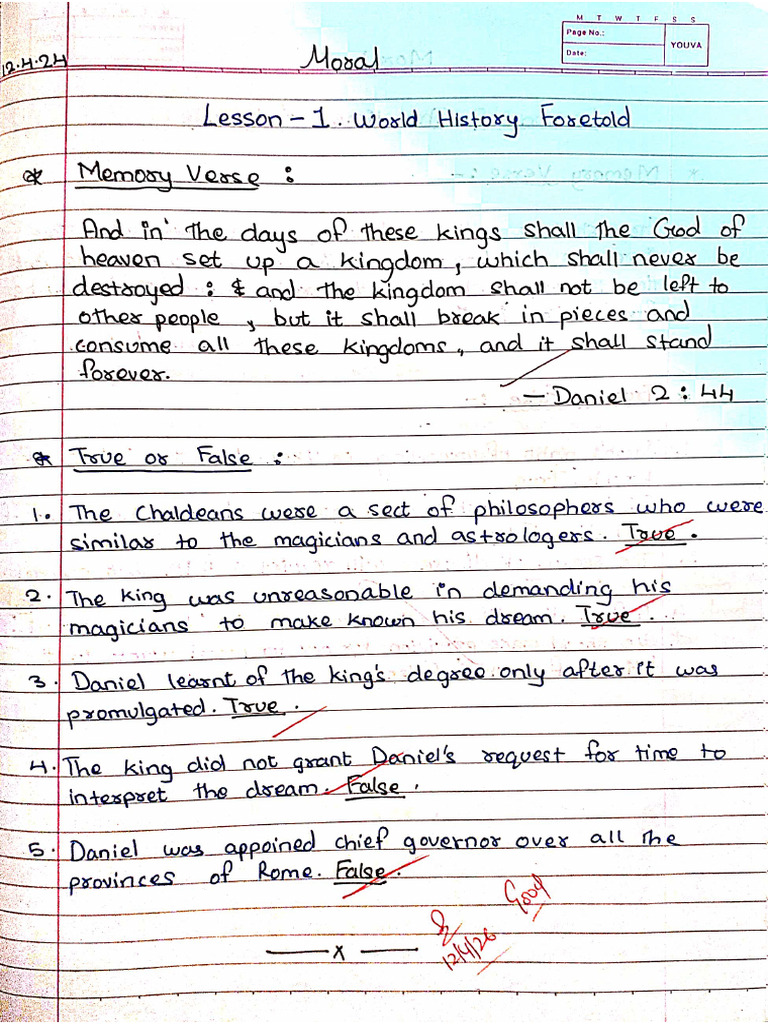 M T W T F S S
Page No.:
Date:
YOUVA
12.4.24
Moral
Lesson - 1. World History Foretold
* Memory Verse :
And in the days of these kings shall the God of
heaven set up a kingdom, which shall never be
destroyed : & and the kingdom shall not be left to
other people, but it shall break in pieces and
consume all these kingdoms, and it shall stand
forever.
- Daniel 2 : 44
* True or False :
1. The Chaldeans were a sect of philosophers who were
similar to the magicians and astrologers. True.
2. The king was unreasonable in demanding his
magicians to make known his dream. True.
3. Daniel learnt of the king's degree only after it was
promulgated. True.
4. The king did not grant Daniel's request for time to
interpret the dream. False.
5. Daniel was appoined chief governor over all the
provinces of Rome. False.
Good
12/4/26
—— x ——